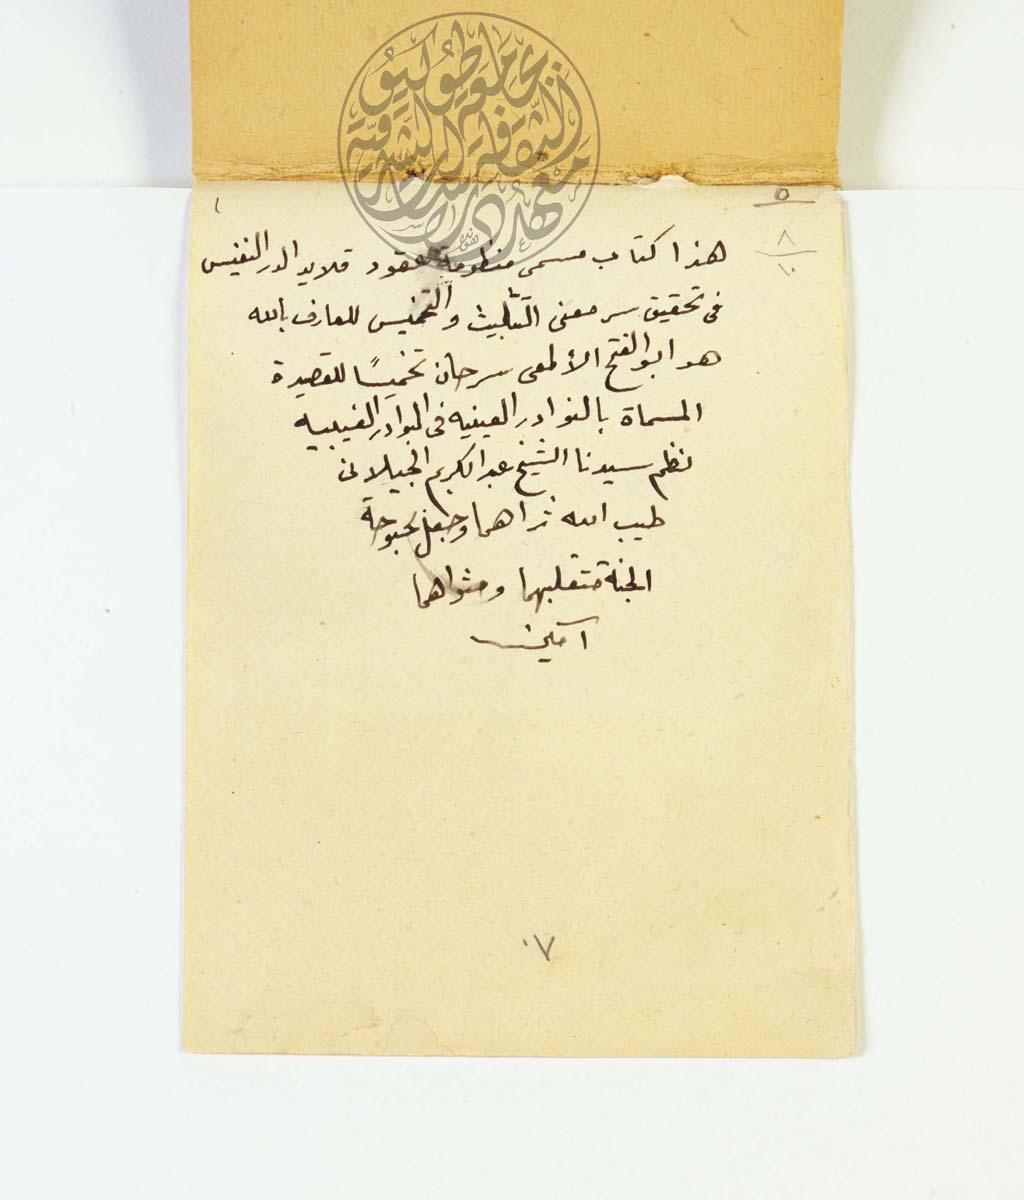 جامعة طوكيو
معهد الثقافة والدراسات الشرقية
١
٥
٨
١٠
هذا كتاب مسمى منظومة عقود قلايد الدر النفيس
فى تحقيق سر معنى التثليث والتخميس للعارف بالله
هو ابو الفتح الألمعى سرحان تخميسًا للقصيدة
المسماة بالنوادر العينيه فى البوادر الغيبيه
نظم سيدنا الشيخ عبد الكريم الجيلانى
طيب الله ثراهما وجعل بحبوحة
الجنة متقلبهما ومثواهما
آمين
٠٧